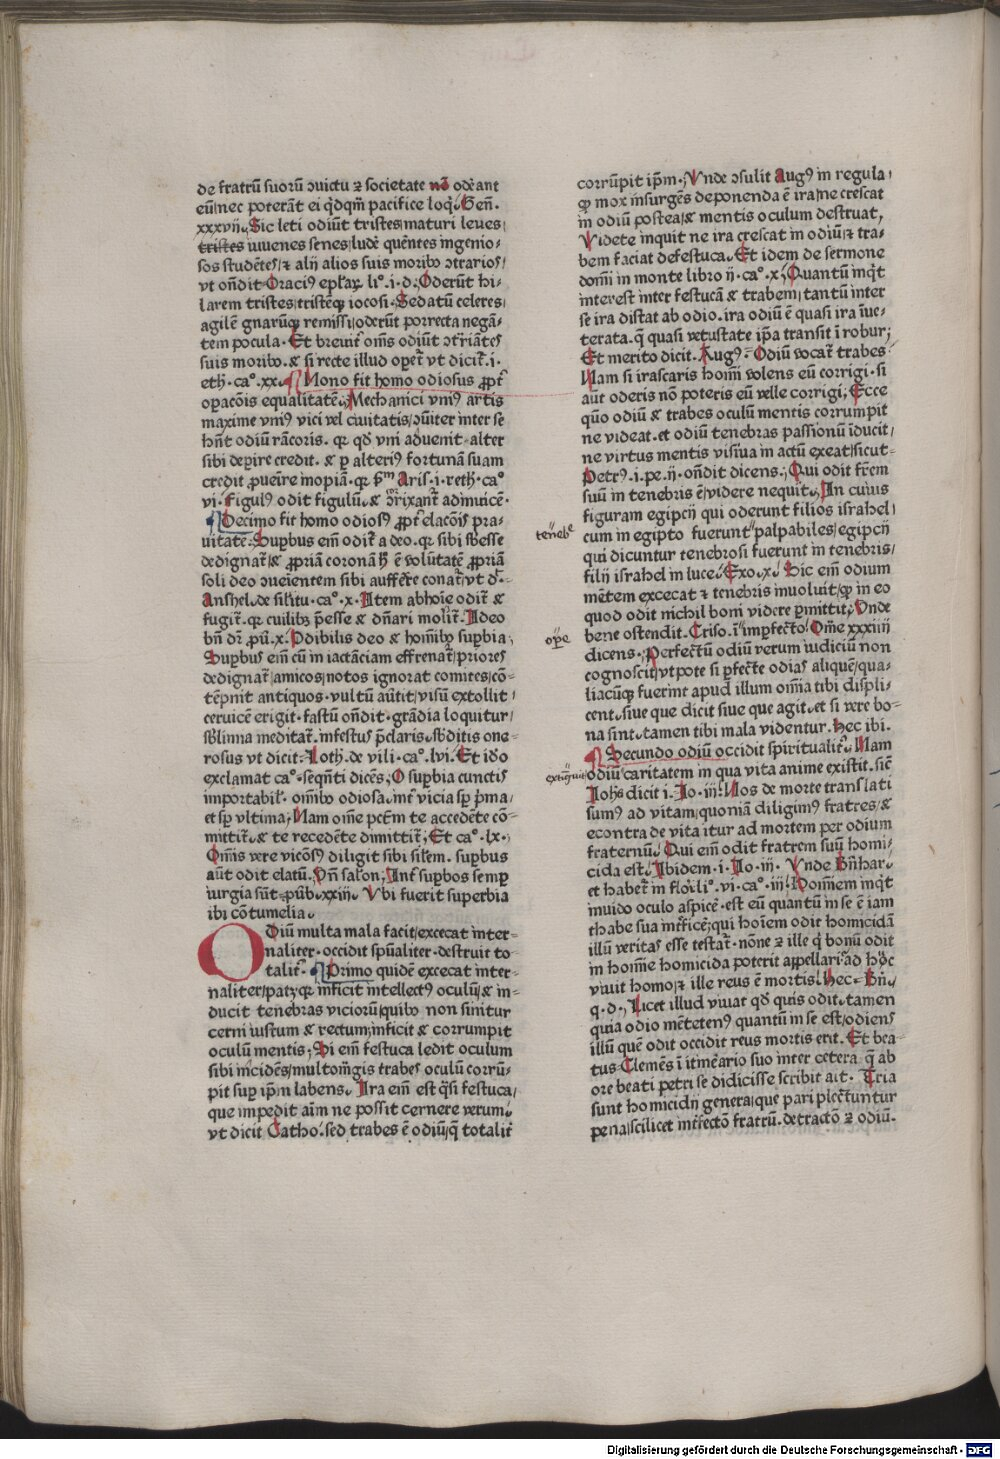 de fratrū suorū ↄuictu ⁊ societate nō odēant
eū/nec poterāt ei q̄dqm̄ pacifice loq̄. Gen̄.
xxxvij. Sic leti odiūt tristes/maturi leues/
tristes iuuenes senes/ludē quētes ingenio-
sos studētes/⁊ alij alios suis moribꝫ ↄtrarios/
vt on̄dit Oracius ep̄laꝝ. li°. i. d. Oderūt hi-
larem tristes/tristēqꝫ iocosi. Sedatū celeres/
agilē gnarūqꝫ remissi/oderūt porrecta negā-
tem pocula. Et breuit̄ om̄s odiūt ↄt̄riātes
suis moribꝫ. & si recte illud oꝑet̄ vt dicit̄. i.
eth. ca°. xx. Nono fit homo odiosus ꝓpt̄
oꝑacōis equalitatē. Mechanici vniꝰ artis
maxime vniꝰ vici vel ciuitatis/ↄiter inter se
hn̄t odiū rācoris. qꝛ qd̓ vni aduenit alter
sibi deꝑire credit. & ꝑ alteriꝰ fortunā suam
credit ꝓueire inopiā. qꝛ Aris. i. reth. ca°
vi. figulꝰ odit figulū. & adinuicē.
Decimo fit homo odiosꝰ ꝓpt̄ elacōis pra-
uitatē. Suꝑbus em̄ odit̄ a deo. qꝛ sibi sb̄esse
dedignat̄/& ꝓpriā coronā h̄ ē volūtatē ꝓpriā
soli deo ↄueientem sibi aufferre conat̄/vt d̄.
Anshel. de silitu. ca°. x. Item ab hoīe odit̄ &
fugit̄. qꝛ cuilibꝫ p̄esse & dn̄ari molit̄. Ideo
bn̄ dr̄ ꝓū. x. Odibilis deo & homībꝫ suꝑbia.
Suꝑbus em̄ cū in iactāciam effrenat̄/priores
dedignat̄/amicos/notos ignorat comites/cō-
tēpnit antiquos. vultū aūtit/visū extollit/
ceruicē erigit. fastū on̄dit. grādia loquitur/
sb̄limia meditat̄. infestus p̄claris. sb̄ditis one-
rosus vt dicit. Loth. de vili. ca°. lvi. Et ido
exclamat ca°. seqn̄ti dicēs. O suꝑbia cunctis
importabil̄. om̄ibꝫ odiosa. int̄ vicia sꝑ p̄ma/
et sꝑ vltima. Nam om̄e pctm̄ te accedēte cō-
mittit̄. & te recedēte dimittit̄. Et ca°. lx.
Om̄is vere vicōsꝰ diligit sibi silem. suꝑbus
aūt odit elatū. Vn̄ salon. Int̄ suꝑbos semꝑ
iurgia sūt. ꝓūb. xxiij. Vbi fuerit superbia
ibi cōtumelia.
Odiū multa mala facit/excecat inter-
naliter. occidit spūaliter. destruit to-
talit̄. Primo quidē excecat inter-
naliter/ inficit intellectꝰ oculū/& in-
ducit tenebras viciorū/quibꝫ non sinitur
cerni iustum & rectum/inficit & corrumpit
oculū mentis. Si em̄ festuca ledit oculum
sibi īncidēs/multomḡis trabes oculū corrū-
pit suꝑ ip̄m labens. Ira em̄ est q̄si festuca/
que impedit aīm ne possit cernere verum.
vt dicit Catho. sed trabes ē odiū/q̄ totalit̄
corrūpit ip̄m. Vnde ↄsulit Augꝰ in regula
ꝙ mox insurgēs deponenda ē ira/ne crescat
in odiū postea/& mentis oculum destruat,
Videte inquit ne ira crescat in odiū/⁊ tra-
bem faciat defestuca. Et idem de sermone
domī in monte libro ij. ca°. x. Quantū inq̄t
interest inter festucā & trabem/tantū inter
se ira distat ab odio. ira odiū ē quasi ira īue-
terata. q̄ quasi vetustate ip̄a transit ī robur.
Et merito dicit. Augꝰ. Odiū vocat̄ trabes
Nam si irascaris homī volens eū corrigi. si
aūt oderis nō poteris eū velle corrigi. Ecce
quō odiū & trabes oculū mentis corrumpit
ne videat. et odiū tenebras passionū īducit/
ne virtus mentis visiua in actū exeat/sicut
Petrꝰ. i. pe. ij. on̄dit dicens. Qui odit fr̄em
suū in tenebris ē/videre nequit. In cuius
figuram egipcij qui oderunt filios israhel/
cum in egipto fuerunt palpabiles/egipcij
teneb̄e
qui dicuntur tenebrosi fuerunt in tenebris/
filij israhel in luce. Exo. x. Sic em̄ odium
mētem excecat ⁊ tenebris inuoluit/ꝙ in eo
quod odit nichil boni videre ꝑmittit. Vnde
bene ostendit. Criso. ī imꝑfecto. Om̄e xxxiiij
oꝑe
dicens. Perfectū odiū verum iudiciū non
cognoscit/vtpote si ꝑfecte odias aliquē/qua-
liacūqꝫ fuerint apud illum om̄ia tibi displi-
cent. siue que dicit siue que agit. et si vere bo-
na sint. tamen tibi mala videntur. hec ibi.
Secundo odiū occidit spiritualit̄. Nam
odiū caritatem in qua vita anime existit. sic̄
extiguit
Iohs̄ dicit i. Io. iij. Nos de morte translati
sumꝰ ad vitam/quoniā diligimꝰ fratres/&
econtra de vita itur ad mortem per odium
fraternū. Qui em̄ odit fratrem suū homi-
cida est. Ibidem. i. Io. iij. Vnde Bn̄har.
et habet̄ in flor̄. li°. vi. ca°. iij. Hominem inq̄t
inuido oculo aspicē. est eū quantū in se ē iam
thabe sua int̄ficē/qui hoīem odit homicidā
illū veritas esse testat̄. nōne ⁊ ille q̄ bonū odit
in homīe homicida poterit appellari/ad hoc
viuit homo/⁊ ille reus ē mortis. Hec. Bn̄.
q. d. Licet illud viuat qd̓ quis odit. tamen
quia odio mētetenꝰ quantū in se est/odiens
illū quē odit occidit reus mortis erit. Et bea-
tus Clemēs ī itinēario suo inter cetera q̄ ab
ore beati petri se didicisse scribit ait. Tria
sunt homicidij genera/que pari plectuntur
pena/scilicet int̄fectō fratrū. detractō ⁊ odiū.
Digitalisierung gefördert durch die Deutsche Forschungsgemeinschaft - DFG